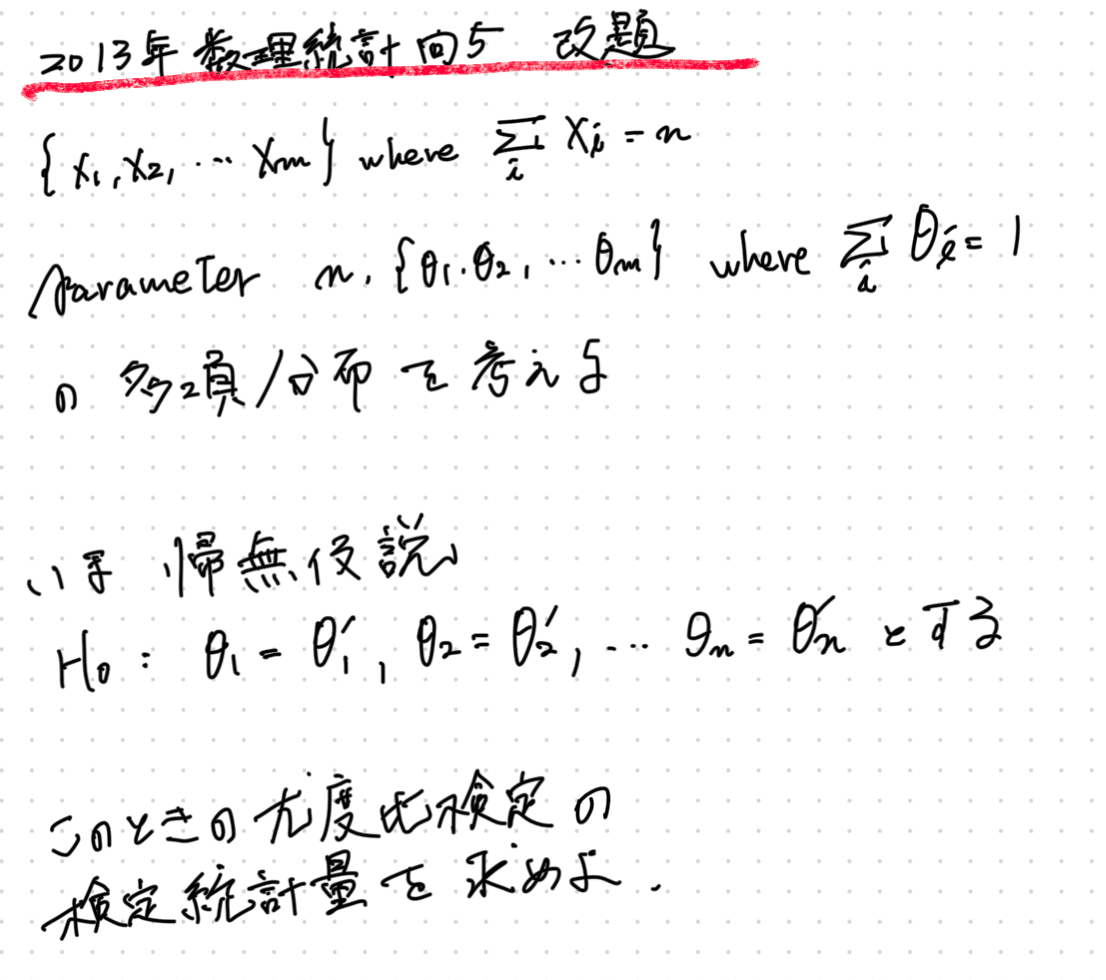 2013年 数理統計 問5 改題
{X₁, X₂, … Xₘ} where Σᵢ Xᵢ = n
parameter n, {θ₁, θ₂, … θₘ} where Σᵢ θᵢ = 1
の 多項分布 を 考えよ
いま 帰無仮説
H₀ : θ₁ = θ₁′, θ₂ = θ₂′, … θₙ = θₙ′ とする
このときの 尤度比検定 の
検定統計量 を 求めよ.